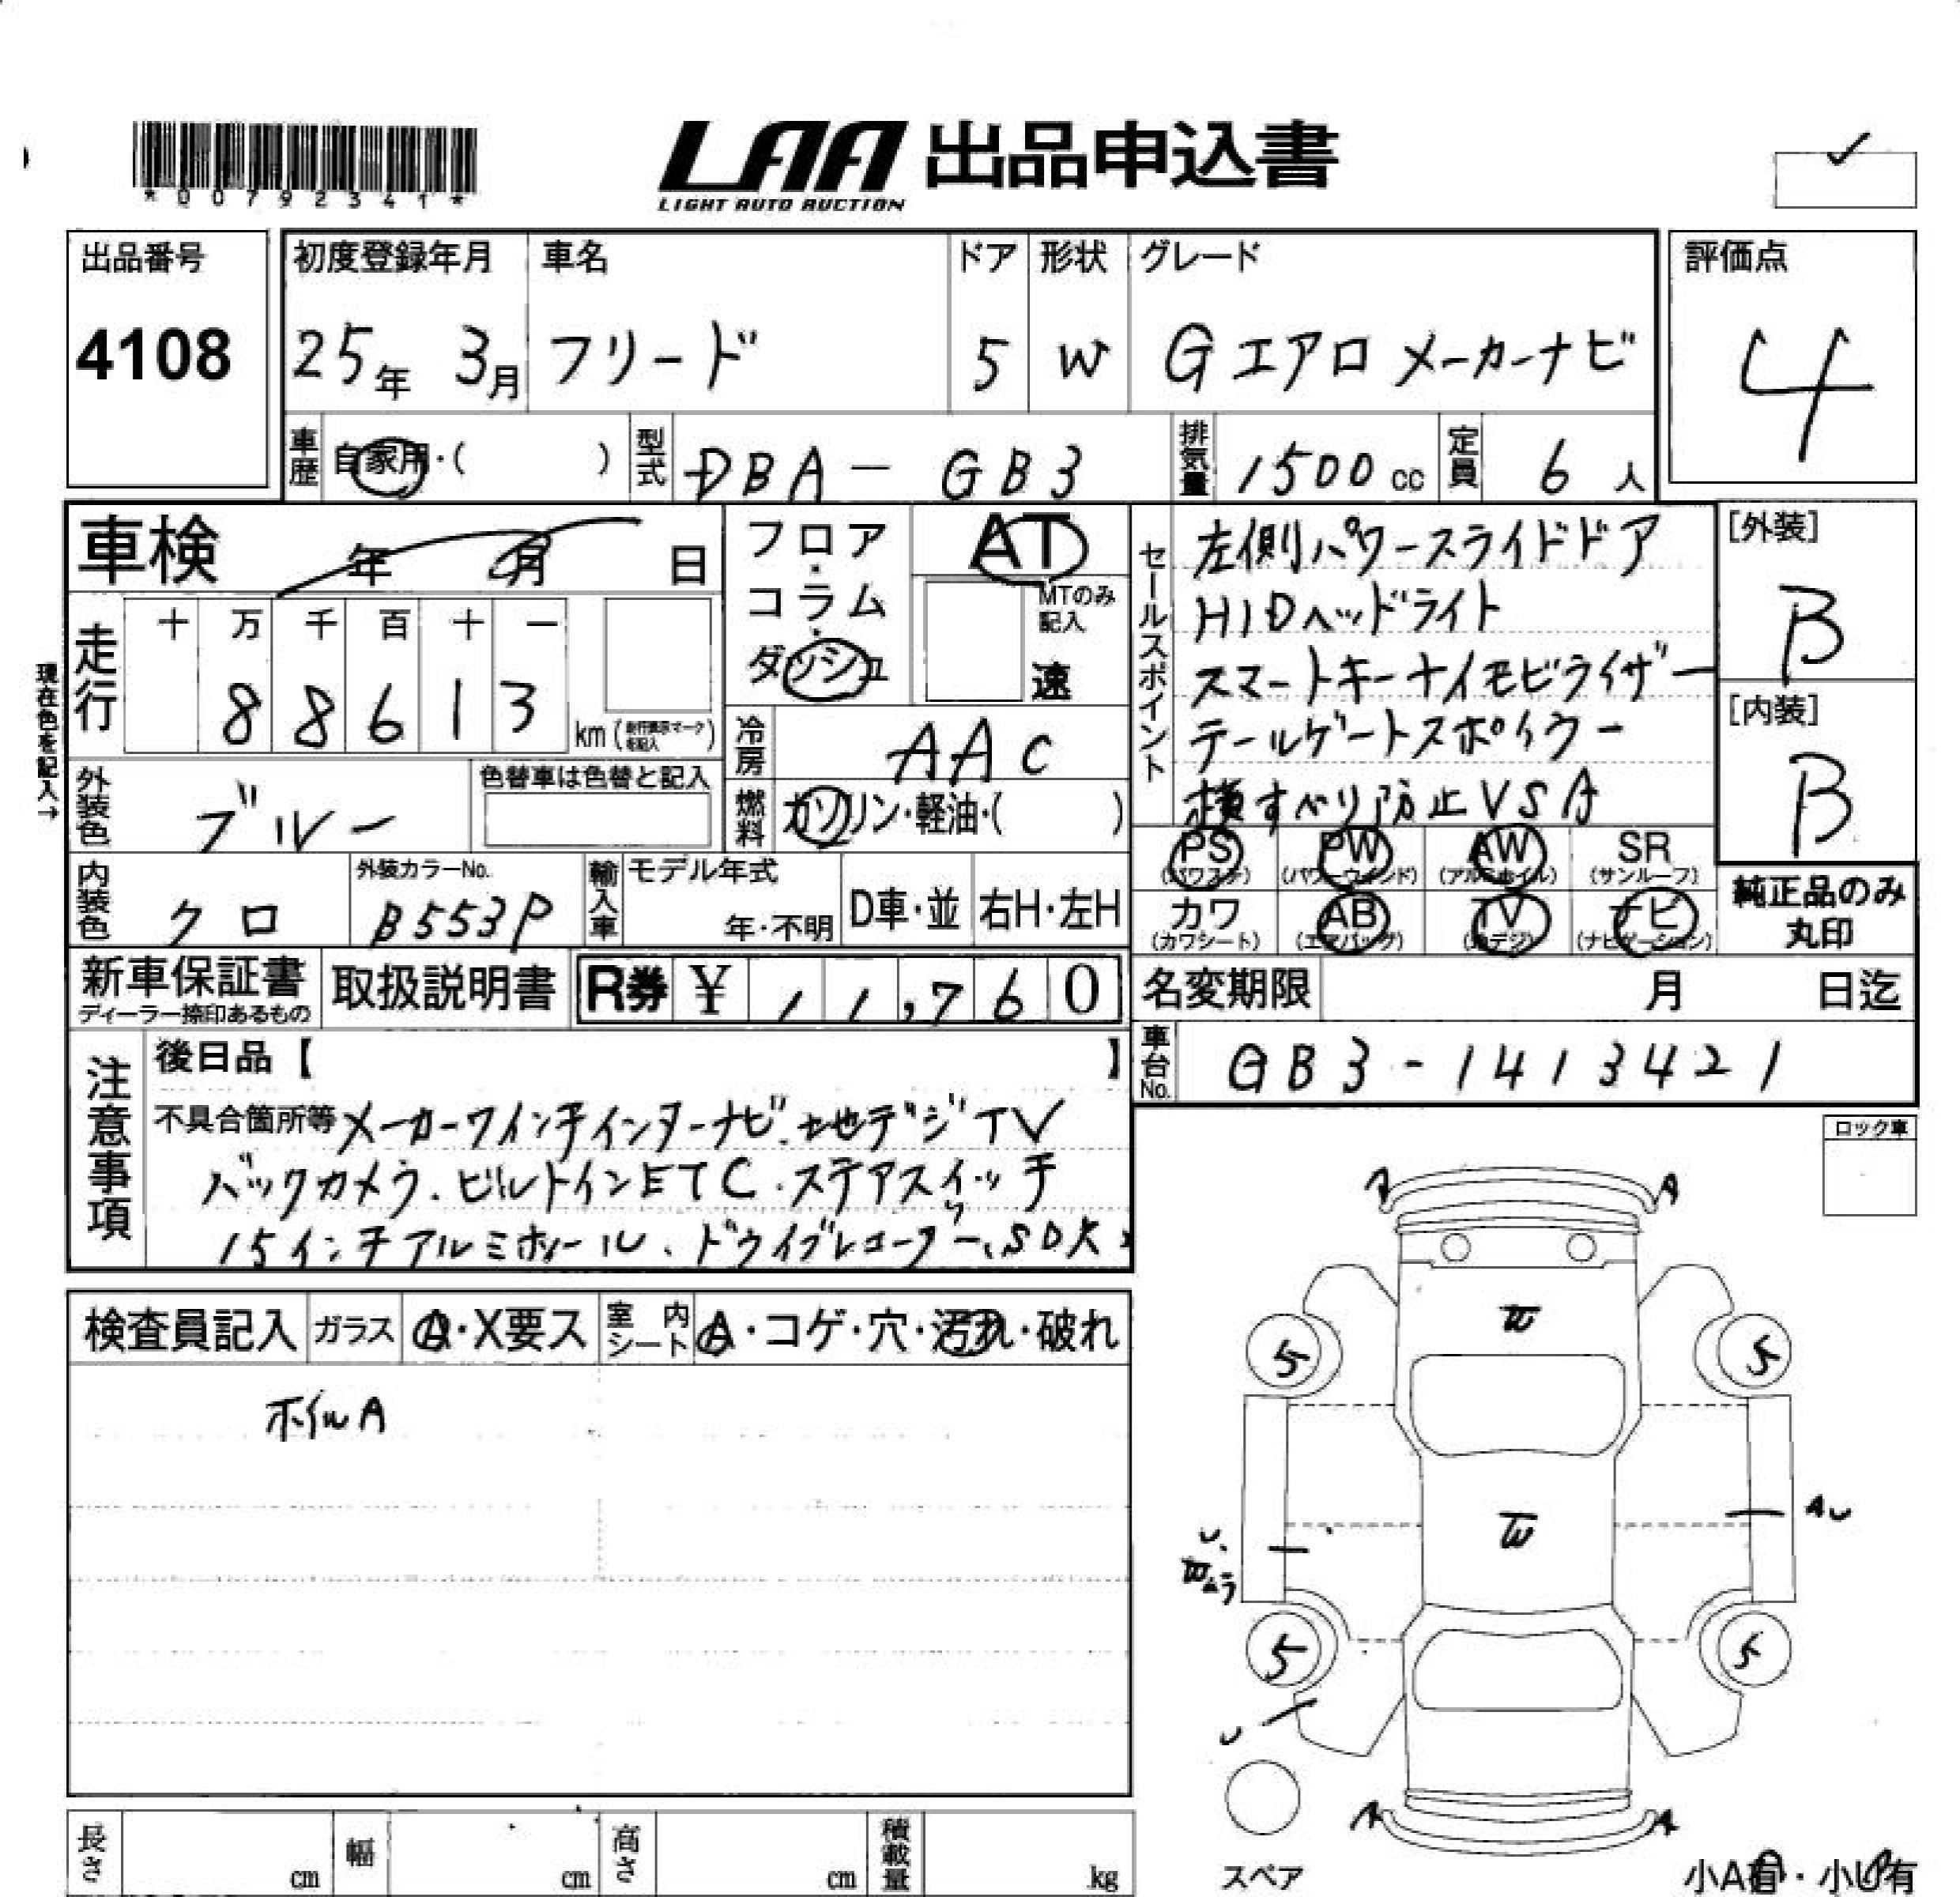 LAA 出品申込書
LIGHT AUTO AUCTION
*00792341*
出品番号
4108
初度登録年月
25年 3月
車名
フリード
ドア
5
形状
W
グレード
Gエアロ メーカーナビ
評価点
4
車歴 自家用・( )
型式 DBA-GB3
排気量 1500cc
定員 6人
車検 年 月 日
フロア・コラム・ダッシュ
AT
MTのみ記入
速
セールスポイント
左側パワースライドドア
HIDヘッドライト
スマートキーナイモビライザー
テールゲートスポイラー
横すべり防止VSA
[外装]
B
[内装]
B
現在色を記入→
走行
十 万 千 百 十 一
88613
km (走行表示マークを記入)
冷房 AAC
外装色 ブルー
色替車は色替と記入
燃料 ガソリン・軽油・( )
PS (パワステ)
PW (パワーウインド)
AW (アルミホイル)
SR (サンルーフ)
カワ (カワシート)
AB (エアバッグ)
TV (地デジ)
ナビ (ナビゲーション)
純正品のみ
丸印
内装色 クロ
外装カラーNo.
B553P
輸入車 モデル年式
年・不明
D車・並
右H・左H
新車保証書
ディーラー捺印あるもの
取扱説明書
R券 ¥ 11,760
名変期限 月 日迄
車台No. GB3-1413421
注意事項
後日品【 】
不具合箇所等 メーカーワインチインターナビ.地デジTV
バックカメラ.ビルトインETC.ステアスイッチ
15インチアルミホイール、ドライブレコーダー、SD欠
ロック車
検査員記入
ガラス A・X要ス
室内シート A・コゲ・穴・汚れ・破れ
ホイルA
A A
W
5 5
W
U.
Wムラ
AU
5 5
U
A A
スペア
小A有・小U有
長さ cm
幅 cm
高さ cm
積載量 kg